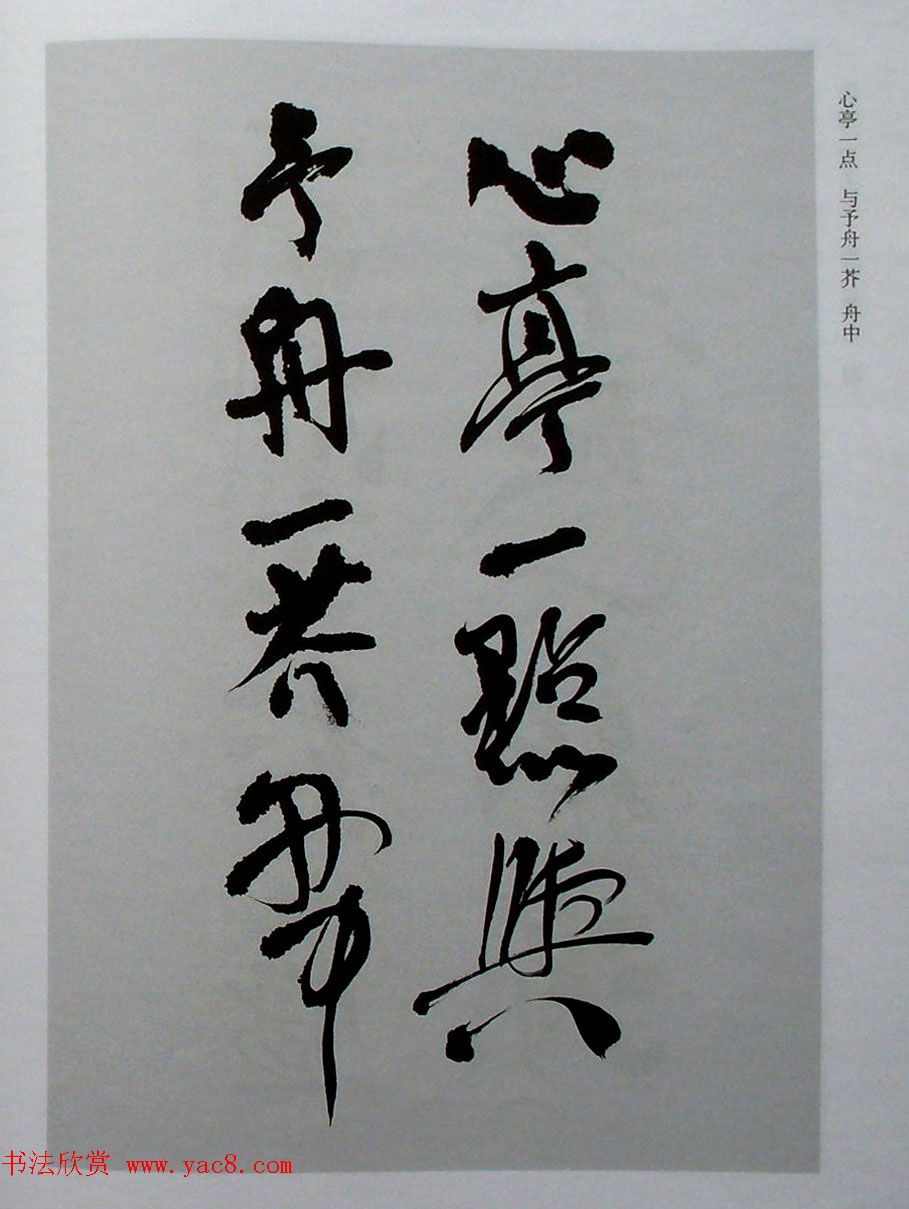 心亭一点 与予舟一芥 舟中
心亭一點與
予舟一芥舟中
书法欣赏 www.yac8.com